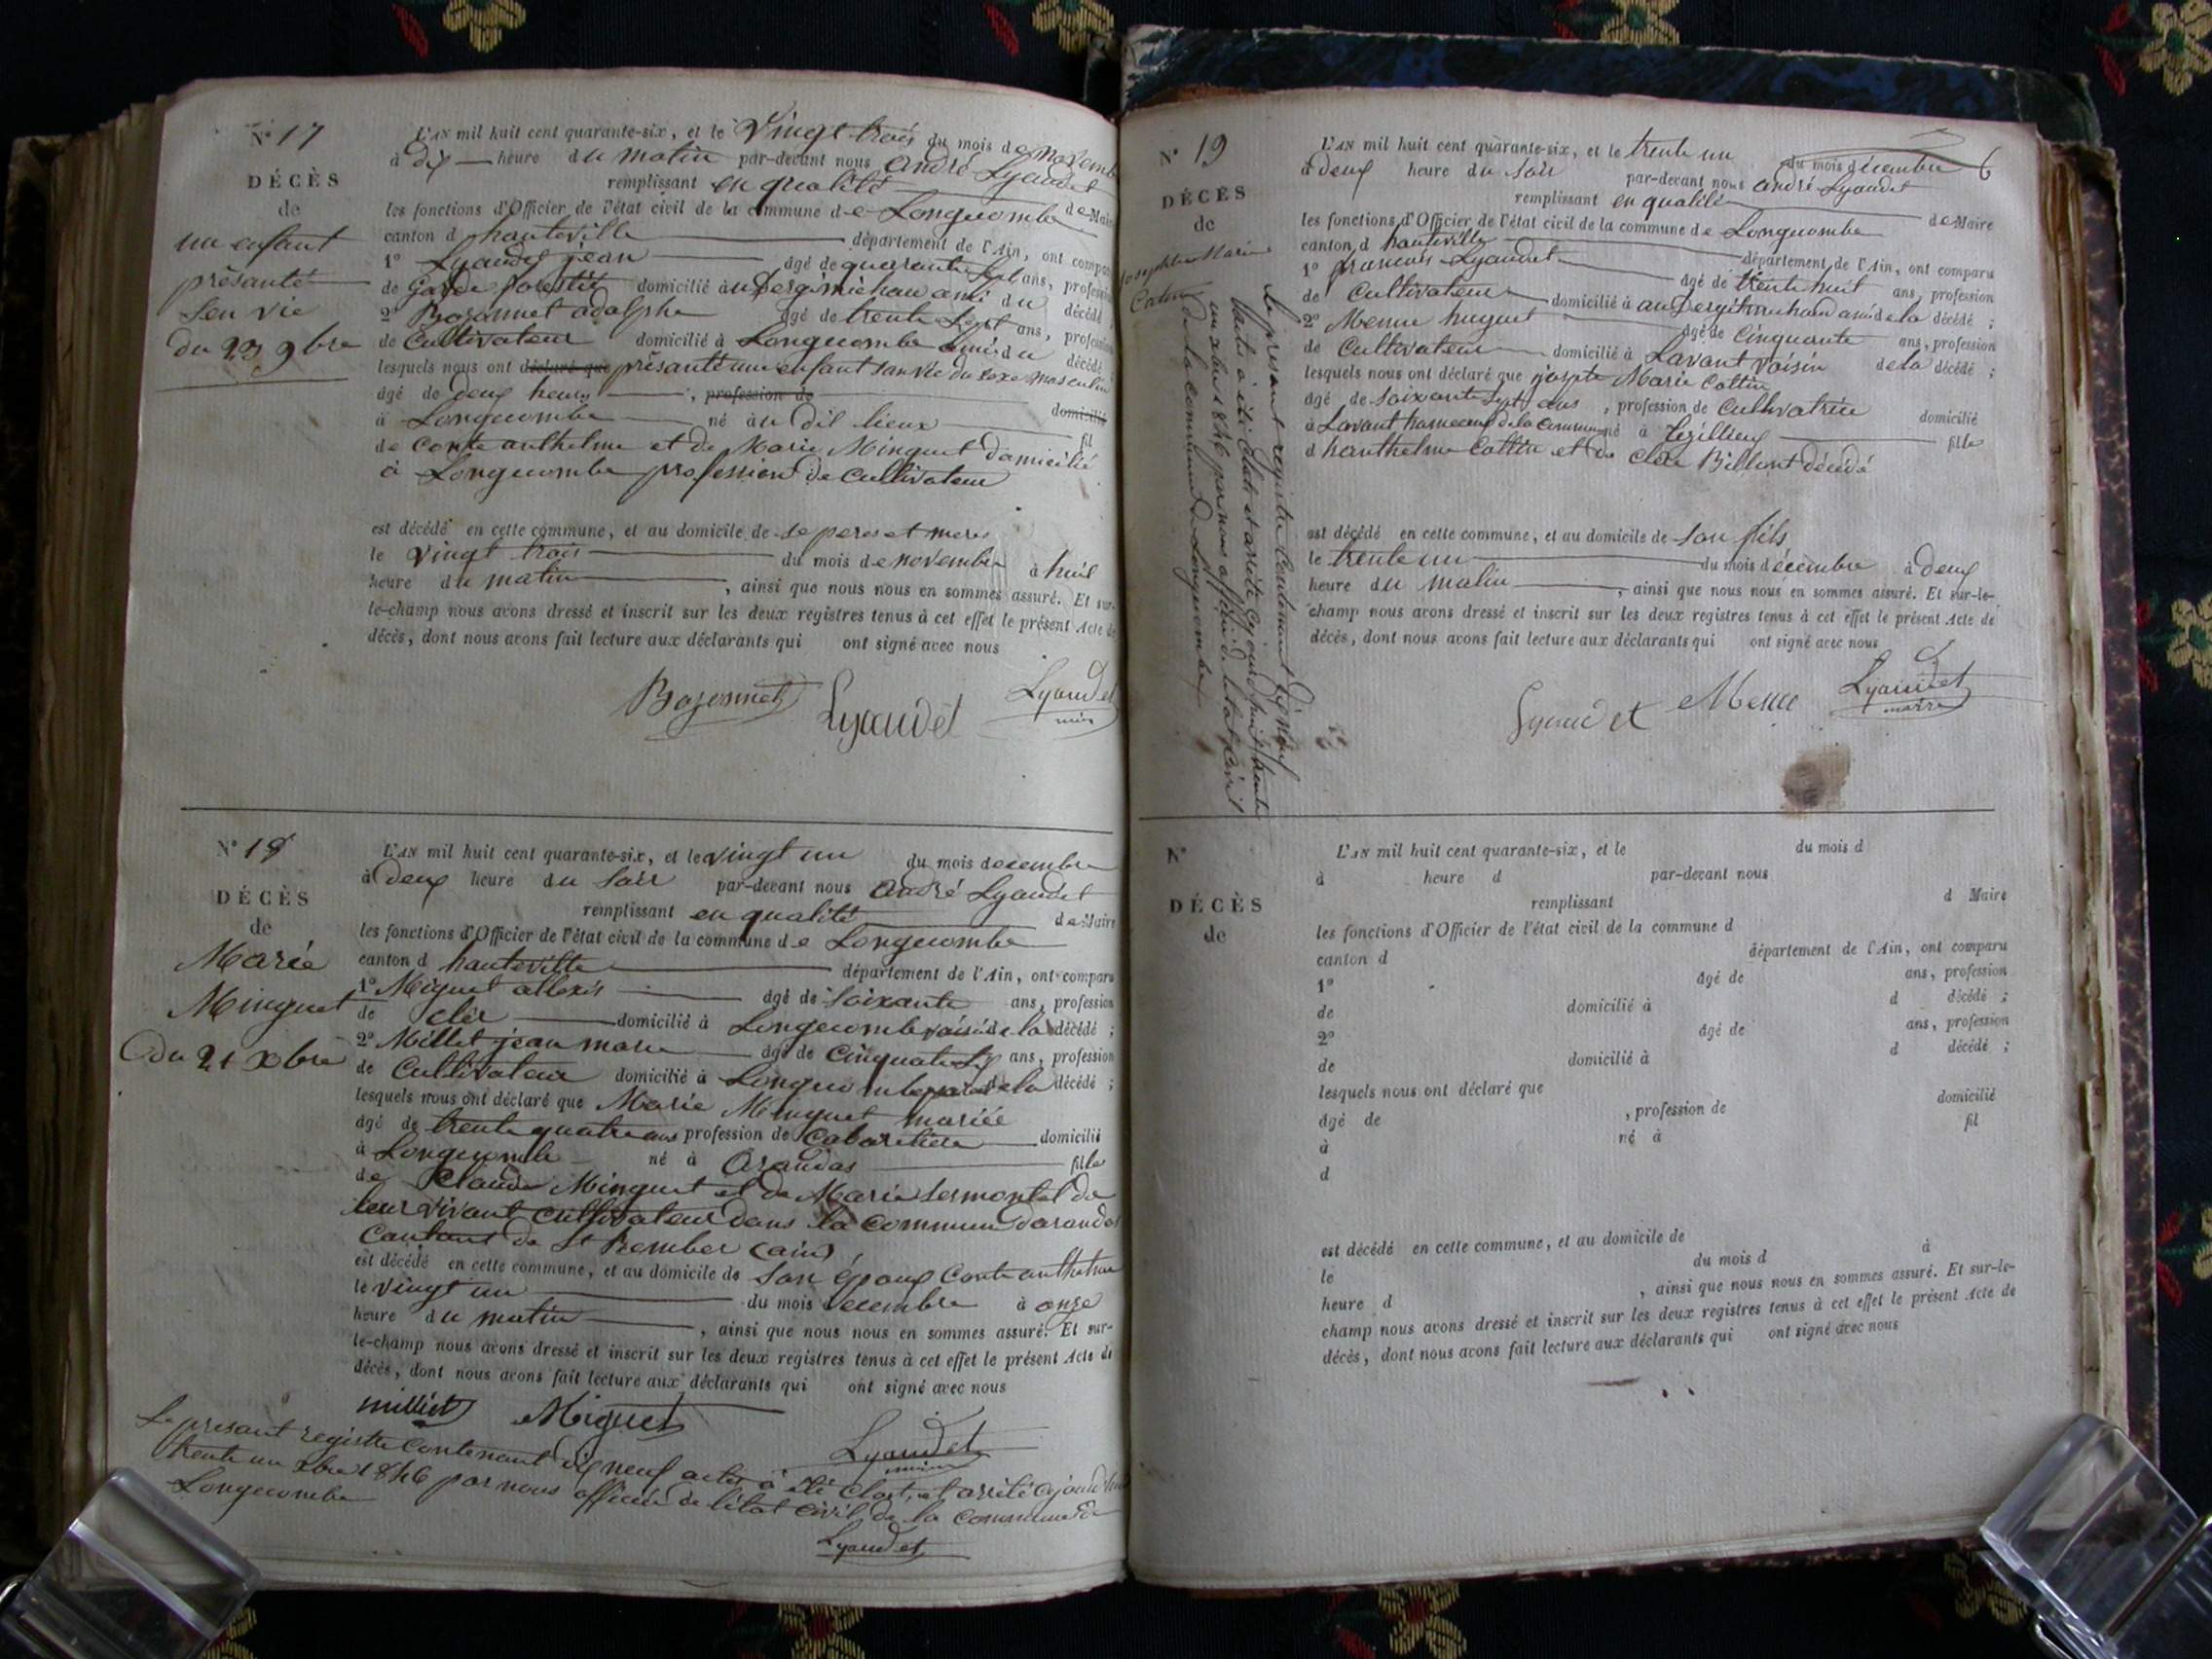 N° 17
DÉCÈS
de
un enfant
présanté
sen vie
du 23 9bre
L'AN mil huit cent quarante-six, et le vingt trois du mois de novemb
à dix heure du matin par-devant nous andré Lyaudet
remplissant en qualité de Maire
les fonctions d'Officier de l'état civil de la commune de Longecombe
canton d hauteville département de l'Ain, ont compa
1° Lyaudet jean âgé de quarante sept ans, professi
de garde forestié domicilié à ami du décédé ;
2° Bozonnet adolphe âgé de trente sept ans, profession
de Cultivateur domicilié à Longecombe ami du décédé
lesquels nous ont déclaré que présanté un enfant san vie du sexe masculin
âgé de deux heures, profession de domicilié
à Longecombe né au dit lieux fil
de Conte anthelme et de Marie Minguet domicilié
à Longecombe profession de Cultivateur
est décédé en cette commune, et au domicile de se peres et mere
le vingt trois du mois de novembre à huit
heure du matin, ainsi que nous nous en sommes assuré. Et sur-
le-champ nous avons dressé et inscrit sur les deux registres tenus à cet effet le présent Acte de
décès, dont nous avons fait lecture aux déclarants qui ont signé avec nous
Bozonnet Lyaudet Lyaudet
N° 18
DÉCÈS
de
Marie
Minguet
du 21 Xbre
L'AN mil huit cent quarante-six, et le vingt un du mois decembre
à deux heure du soir par-devant nous andré Lyaudet
remplissant en qualité de Maire
les fonctions d'Officier de l'état civil de la commune de Longecombe
canton d hauteville département de l'Ain, ont comparu
1° Miguet allexis âgé de soixante ans, profession
de domicilié à Longecombe voisin de la décédé ;
2° Milliet jean marie âgé de ans, profession
de Cultivateur domicilié à de la décédé ;
lesquels nous ont déclaré que Marie Minguet mariée
âgé de trente quatre ans profession de Cabaretière domicilié
à Longecombe né à Arandas fille
de Claude Minguet et de Marie Sermontet de
leur vivant cultivateur dans la commune darandas
Cantons de St Rember (ain)
est décédé en cette commune, et au domicile de son époux Conte anthelme
le vingt un du mois decembre à onze
heure du matin, ainsi que nous nous en sommes assuré. Et sur-
le-champ nous avons dressé et inscrit sur les deux registres tenus à cet effet le présent Acte de
décès, dont nous avons fait lecture aux déclarants qui ont signé avec nous
milliet Miguet
Lyaudet
Le présant registre Contenant dix neuf actes à été Clos, et arrêté
trente un Xbre 1846 par nous officié de l'état civil de la commune de
Longecombe
Lyaudet
N° 19
DÉCÈS
de
Josephte Marie
Le présant registre Contenant dix neuf
actes à été Clos et arrêté ajourd'hui trente
un Xbre 1846 par nous officié de l'etat civil
de la commune de Longecombe
L'AN mil huit cent quarante-six, et le trente un du mois décembre
à deux heure du soir par-devant nous andré Lyaudet
remplissant en qualité de Maire
les fonctions d'Officier de l'état civil de la commune de Longecombe
canton d hauteville département de l'Ain, ont comparu
1° francois Lyaudet âgé de trente huit ans, profession
de Cultivateur domicilié à ami de la décédé ;
2° Menu huguet âgé de Cinquante ans, profession
de Cultivateur domicilié à Lavant voisin de la décédé ;
lesquels nous ont déclaré que josepte Marie Cottin
âgé de soixante sept ans, profession de Cultivatrice domicilié
à Lavant hameaux de la commune né à fille
d hanthelme Cottin et de Billent décédé
est décédé en cette commune, et au domicile de son fils
le trente un du mois décembre à deux
heure du matin, ainsi que nous nous en sommes assuré. Et sur-le-
champ nous avons dressé et inscrit sur les deux registres tenus à cet effet le présent Acte de
décès, dont nous avons fait lecture aux déclarants qui ont signé avec nous
Lyaudet Menu Lyaudet
N°
DÉCÈS
de
L'AN mil huit cent quarante-six, et le du mois d
à heure d par-devant nous
remplissant d Maire
les fonctions d'Officier de l'état civil de la commune d
canton d département de l'Ain, ont comparu
1° âgé de ans, profession
de domicilié à d décédé ;
2° âgé de ans, profession
de domicilié à d décédé ;
lesquels nous ont déclaré que
âgé de , profession de domicilié
à né à fil
d
est décédé en cette commune, et au domicile de
le du mois d à
heure d , ainsi que nous nous en sommes assuré. Et sur-le-
champ nous avons dressé et inscrit sur les deux registres tenus à cet effet le présent Acte de
décès, dont nous avons fait lecture aux déclarants qui ont signé avec nous